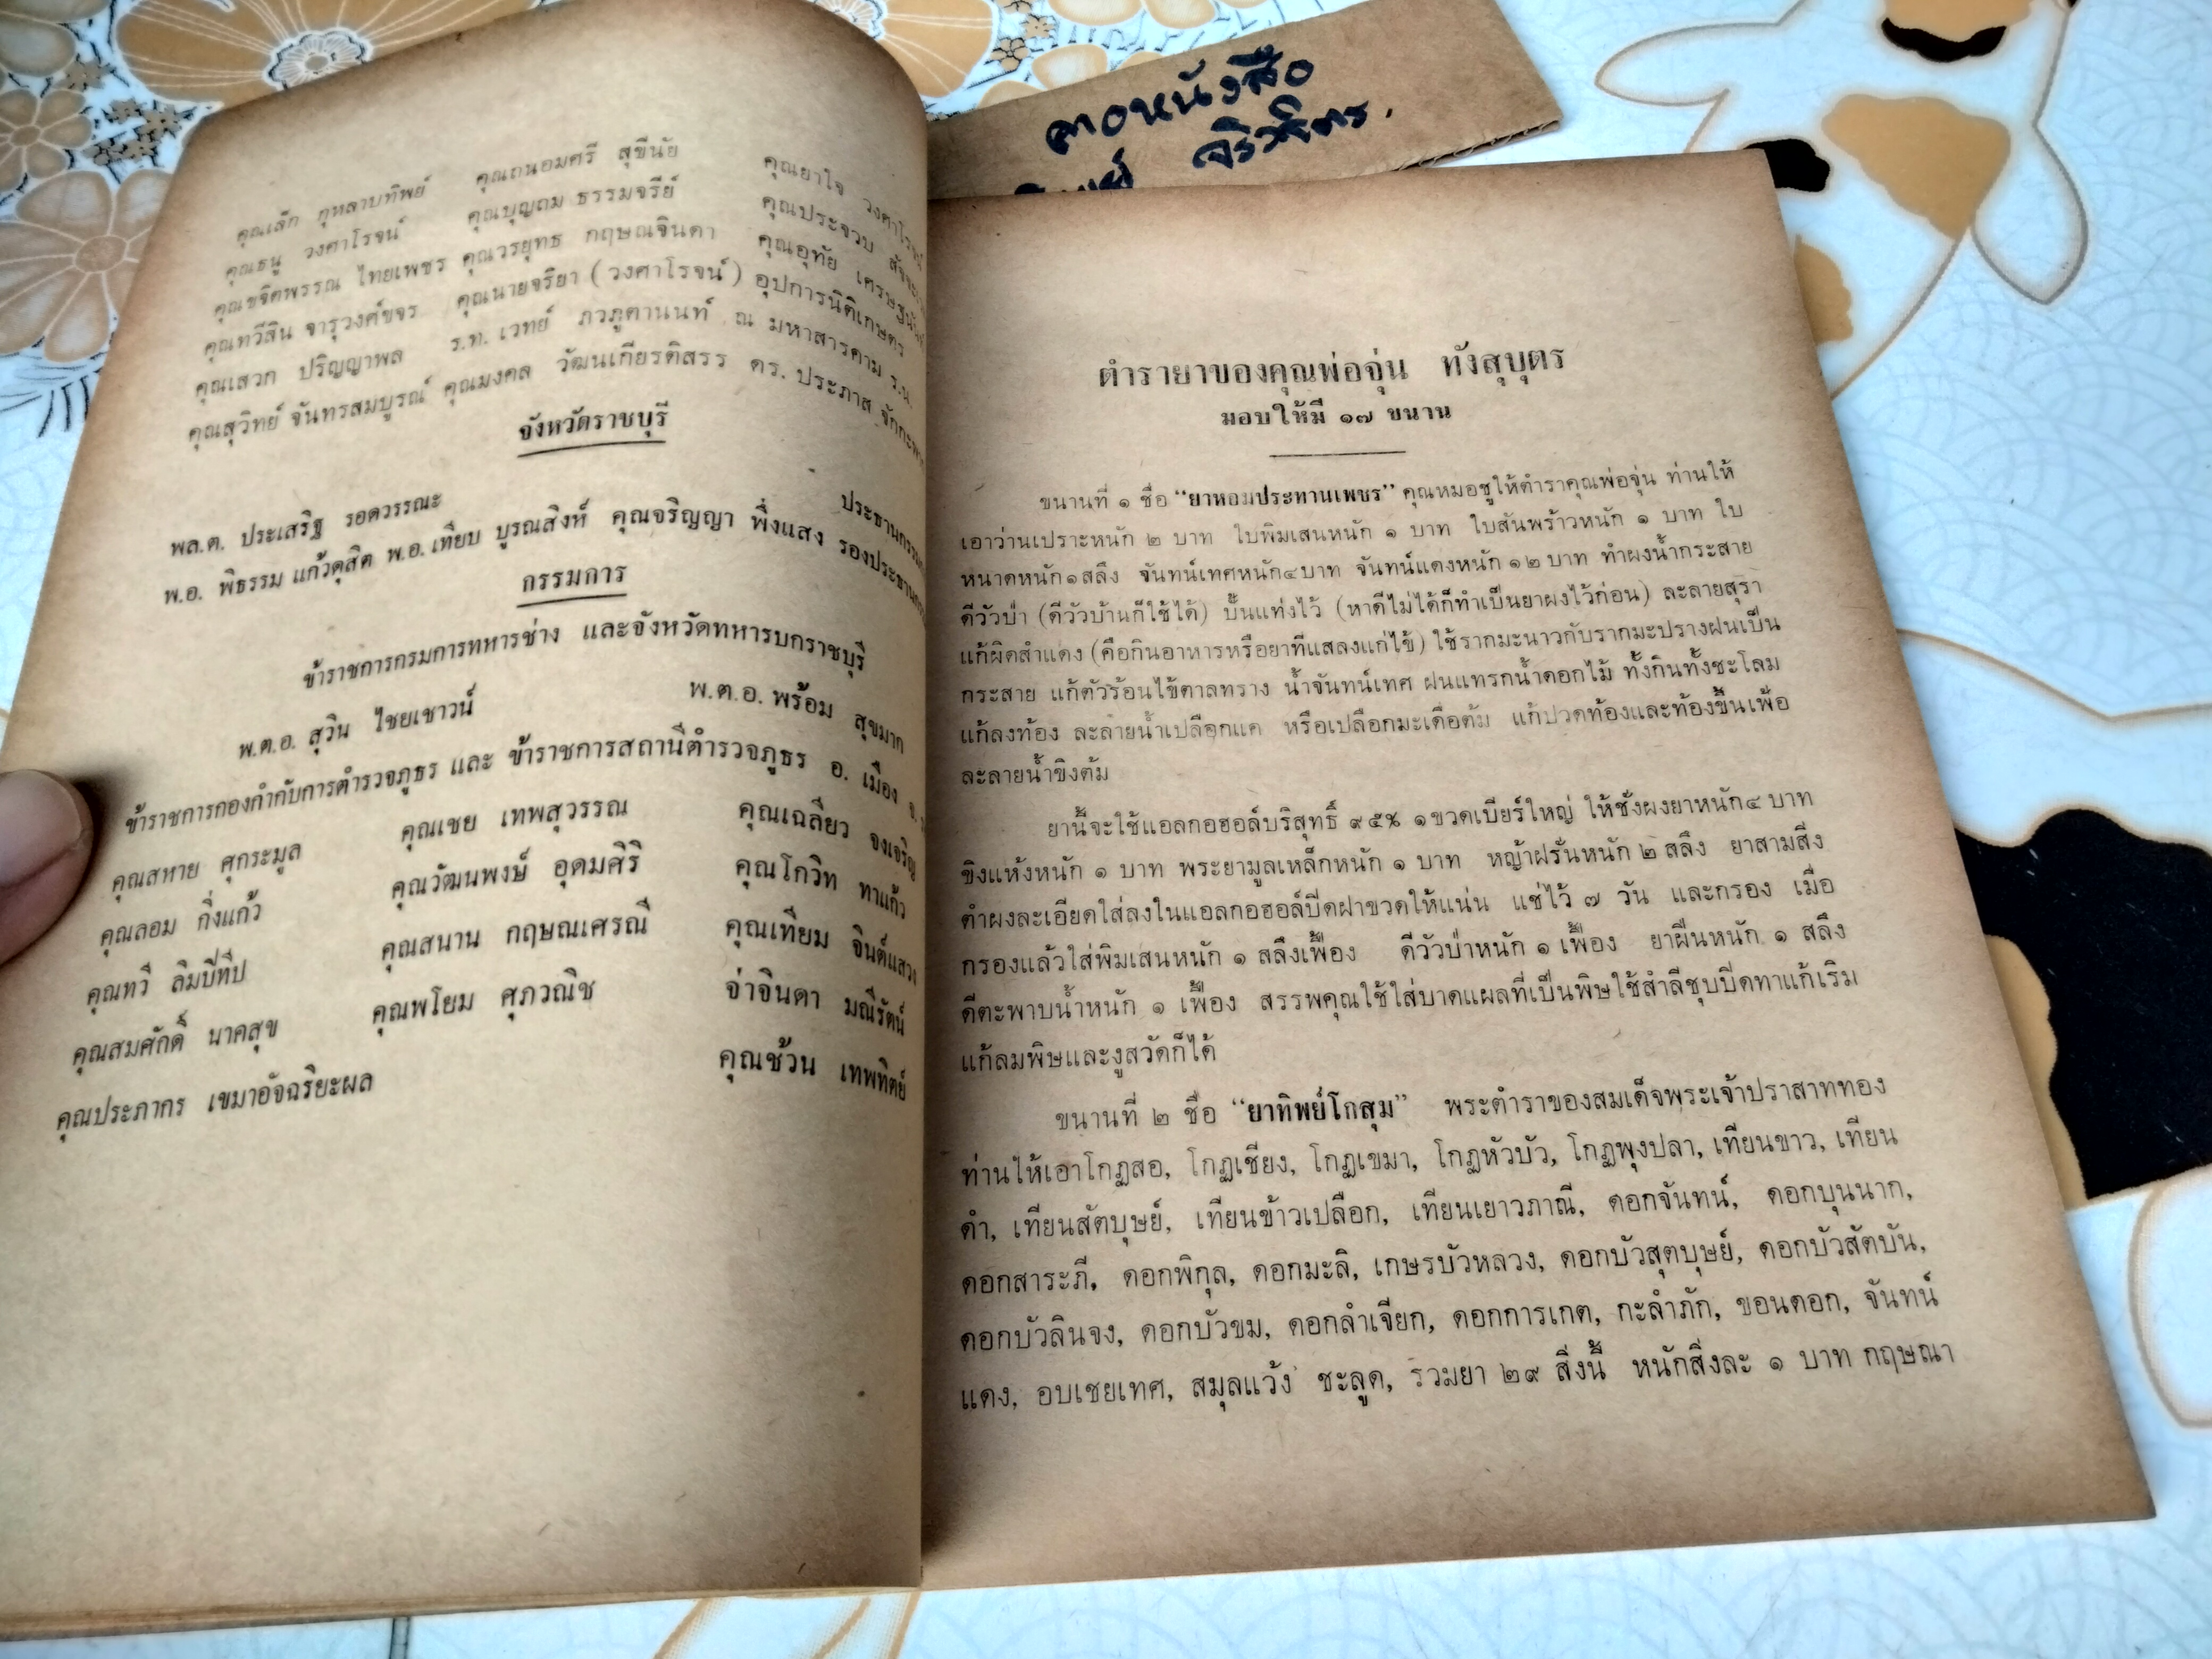 คอหนังสือ
จิรวิจิตร.
คุณเล็ก กุหลาบทิพย์ คุณถนอมศรี สุขีนัย คุณยาใจ วงศาโรจน์
คุณธนู วงศาโรจน์ คุณบุญถม ธรรมจรีย์ คุณประจวบ
คุณขจิตพรรณ ไทยเพชร คุณวรยุทธ กฤษณจินดา คุณอุทัย
คุณทวีสิน จารุวงศ์ขจร คุณนายจริยา (วงศาโรจน์) อุปการนิติเกษตร
คุณเสวก ปริญญาพล ร.ท. เวทย์ ภวภูตานนท์ ณ มหาสารคาม ร.น.
คุณสุวิทย์ จันทรสมบูรณ์ คุณมงคล วัฒนเกียรติสรร ดร. ประภาส
จังหวัดราชบุรี
พล.ต. ประเสริฐ รอดวรรณะ
พ.อ. พิธรรม แก้วดุสิต พ.อ. เทียบ บูรณสิงห์ คุณจริญญา พึ่งแสง
กรรมการ
ข้าราชการกรมการทหารช่าง และจังหวัดทหารบกราชบุรี
พ.ต.อ. สุวิน ไชยเชาวน์ พ.ต.อ. พร้อม สุขมาก
ข้าราชการกองกำกับการตำรวจภูธร และ ข้าราชการสถานีตำรวจภูธร อ. เมือง จ.
คุณสหาย ศุกระมูล คุณเชย เทพสุวรรณ คุณเฉลียว จงเจริญ
คุณลอม กิ่งแก้ว คุณวัฒนพงษ์ อุดมศิริ คุณโกวิท ทาแก้ว
คุณทวี ลิมป์ทีป คุณสนาน กฤษณเศรณี คุณเทียม จินต์แสวง
คุณสมศักดิ์ นาคสุข คุณพโยม ศุภวณิช จ่าจินดา มณีรัตน์
คุณประภากร เขมาอัจฉริยะผล คุณช้วน เทพทิตย์
ตำรายาของคุณพ่อจุ่น ทังสุบุตร
มอบให้มี ๑๗ ขนาน
ขนานที่ ๑ ชื่อ “ยาหอมประทานเพชร” คุณหมอชูให้ตำราคุณพ่อจุ่น ท่านให้
เอาว่านเปราะหนัก ๒ บาท ใบพิมเสนหนัก ๑ บาท ใบสันพร้าวหนัก ๑ บาท ใบ
หนาดหนัก๑สลึง จันทน์เทศหนัก๔บาท จันทน์แดงหนัก ๑๒ บาท ทำผงน้ำกระสาย
ดีวัวป่า (ดีวัวบ้านก็ใช้ได้) ปั้นแท่งไว้ (หาดีไม่ได้ก็ทำเป็นยาผงไว้ก่อน) ละลายสุรา
แก้ผิดสำแดง (คือกินอาหารหรือยาที่แสลงแก่ไข้) ใช้รากมะนาวกับรากมะปรางฝนเป็น
กระสาย แก้ตัวร้อนไข้ตาลทราง น้ำจันทน์เทศ ฝนแทรกน้ำดอกไม้ ทั้งกินทั้งชะโลม
แก้ลงท้อง ละลายน้ำเปลือกแค หรือเปลือกมะเดื่อต้ม แก้ปวดท้องและท้องขึ้นเฟ้อ
ละลายน้ำขิงต้ม
ยานี้จะใช้แอลกอฮอล์บริสุทธิ์ ๙๕% ๑ขวดเบียร์ใหญ่ ให้ชั่งผงยาหนัก๔ บาท
ขิงแห้งหนัก ๑ บาท พระยามูลเหล็กหนัก ๑ บาท หญ้าฝรั่นหนัก ๒ สลึง ยาสามสิ่ง
ตำผงละเอียดใส่ลงในแอลกอฮอล์ปิดฝาขวดให้แน่น แช่ไว้ ๗ วัน และกรอง เมื่อ
กรองแล้วใส่พิมเสนหนัก ๑ สลึงเฟื้อง ดีวัวป่าหนัก ๑ เฟื้อง ยาฝิ่นหนัก ๑ สลึง
ดีตะพาบน้ำหนัก ๑ เฟื้อง สรรพคุณใช้ใส่บาดแผลที่เป็นพิษใช้สำลีชุบปิดทาแก้เริม
แก้ลมพิษและงูสวัดก็ได้
ขนานที่ ๒ ชื่อ “ยาทิพย์โกสุม” พระตำราของสมเด็จพระเจ้าปราสาททอง
ท่านให้เอาโกฏสอ, โกฏเชียง, โกฏเขมา, โกฏหัวบัว, โกฏพุงปลา, เทียนขาว, เทียน
ดำ, เทียนสัตบุษย์, เทียนข้าวเปลือก, เทียนเยาวภาณี, ดอกจันทน์, ดอกบุนนาก,
ดอกสาระภี, ดอกพิกุล, ดอกมะลิ, เกษรบัวหลวง, ดอกบัวสุตบุษย์, ดอกบัวสัตบัน,
ดอกบัวลินจง, ดอกบัวขม, ดอกลำเจียก, ดอกการเกต, กะลำภัก, ขอนดอก, จันทน์
แดง, อบเชยเทศ, สมุลแว้ง ชะลูด, รวมยา ๒๙ สิ่งนี้ หนักสิ่งละ ๑ บาท กฤษณา